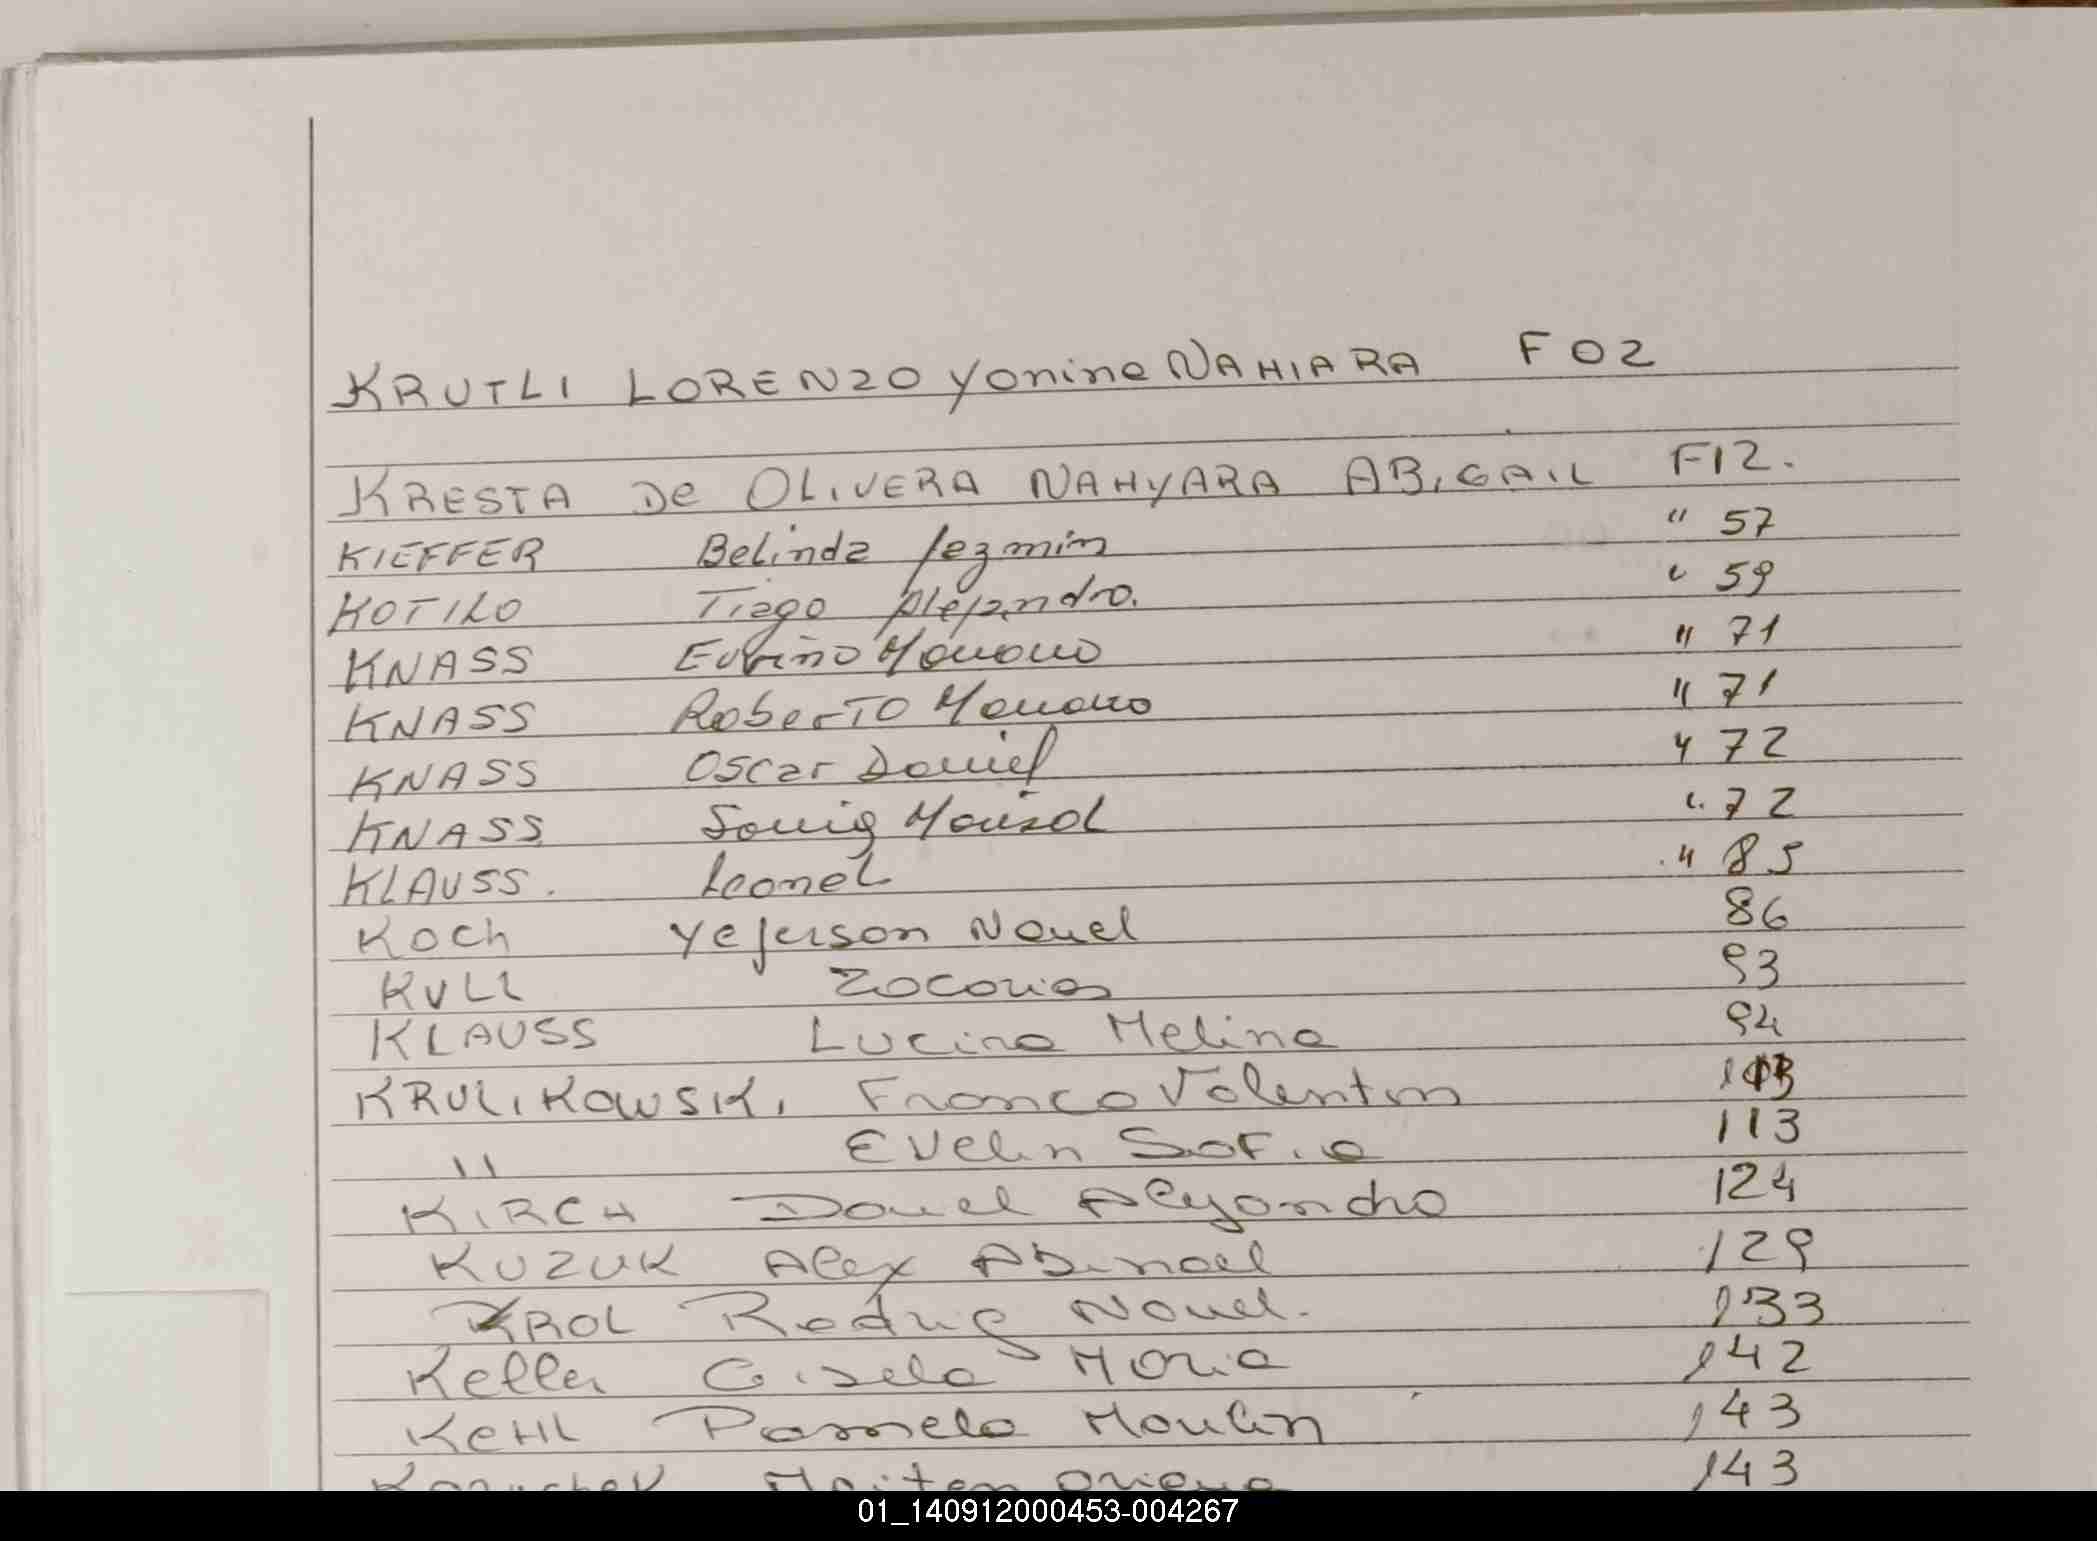 KRUTLI LORENZO Yonina NAHIARA F 02
KRESTA De OLIVERA NAHYARA ABIGAIL F12.
KIEFFER Belinda Jazmin " 57
KOTILO Tiago Alejandro. " 59
KNASS Mariano " 71
KNASS Roberto Mariano " 71
KNASS Oscar Daniel " 72
KNASS Sonia Marisol " 72
KLAUSS. Leonel " 85
Koch Yeferson Nauel 86
KULL Zacarias 93
KLAUSS Lucina Melina 94
KRULIKOWSKI Franco Valentin
" Evelin Sofia 113
KIRCH Daniel Alejandro 124
KUZUK Alex Abinael 129
KROL Rodrig Nauel. 133
Keller Gisela Maria 142
KeHL Pamela Mailin 143
Maiten 143
01_140912000453-004267